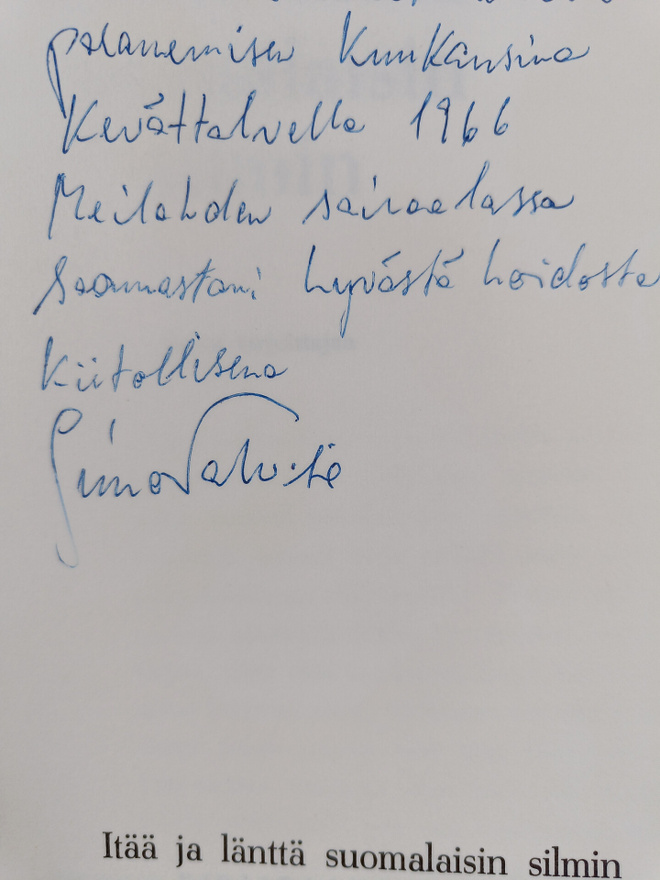 palanemisen Kuukausina
Keväättalvella 1966
Meilahden sairaalassa
Saamastani hyvästä hoidosta
Kiitollisena
Itää ja länttä suomalaisin silmin